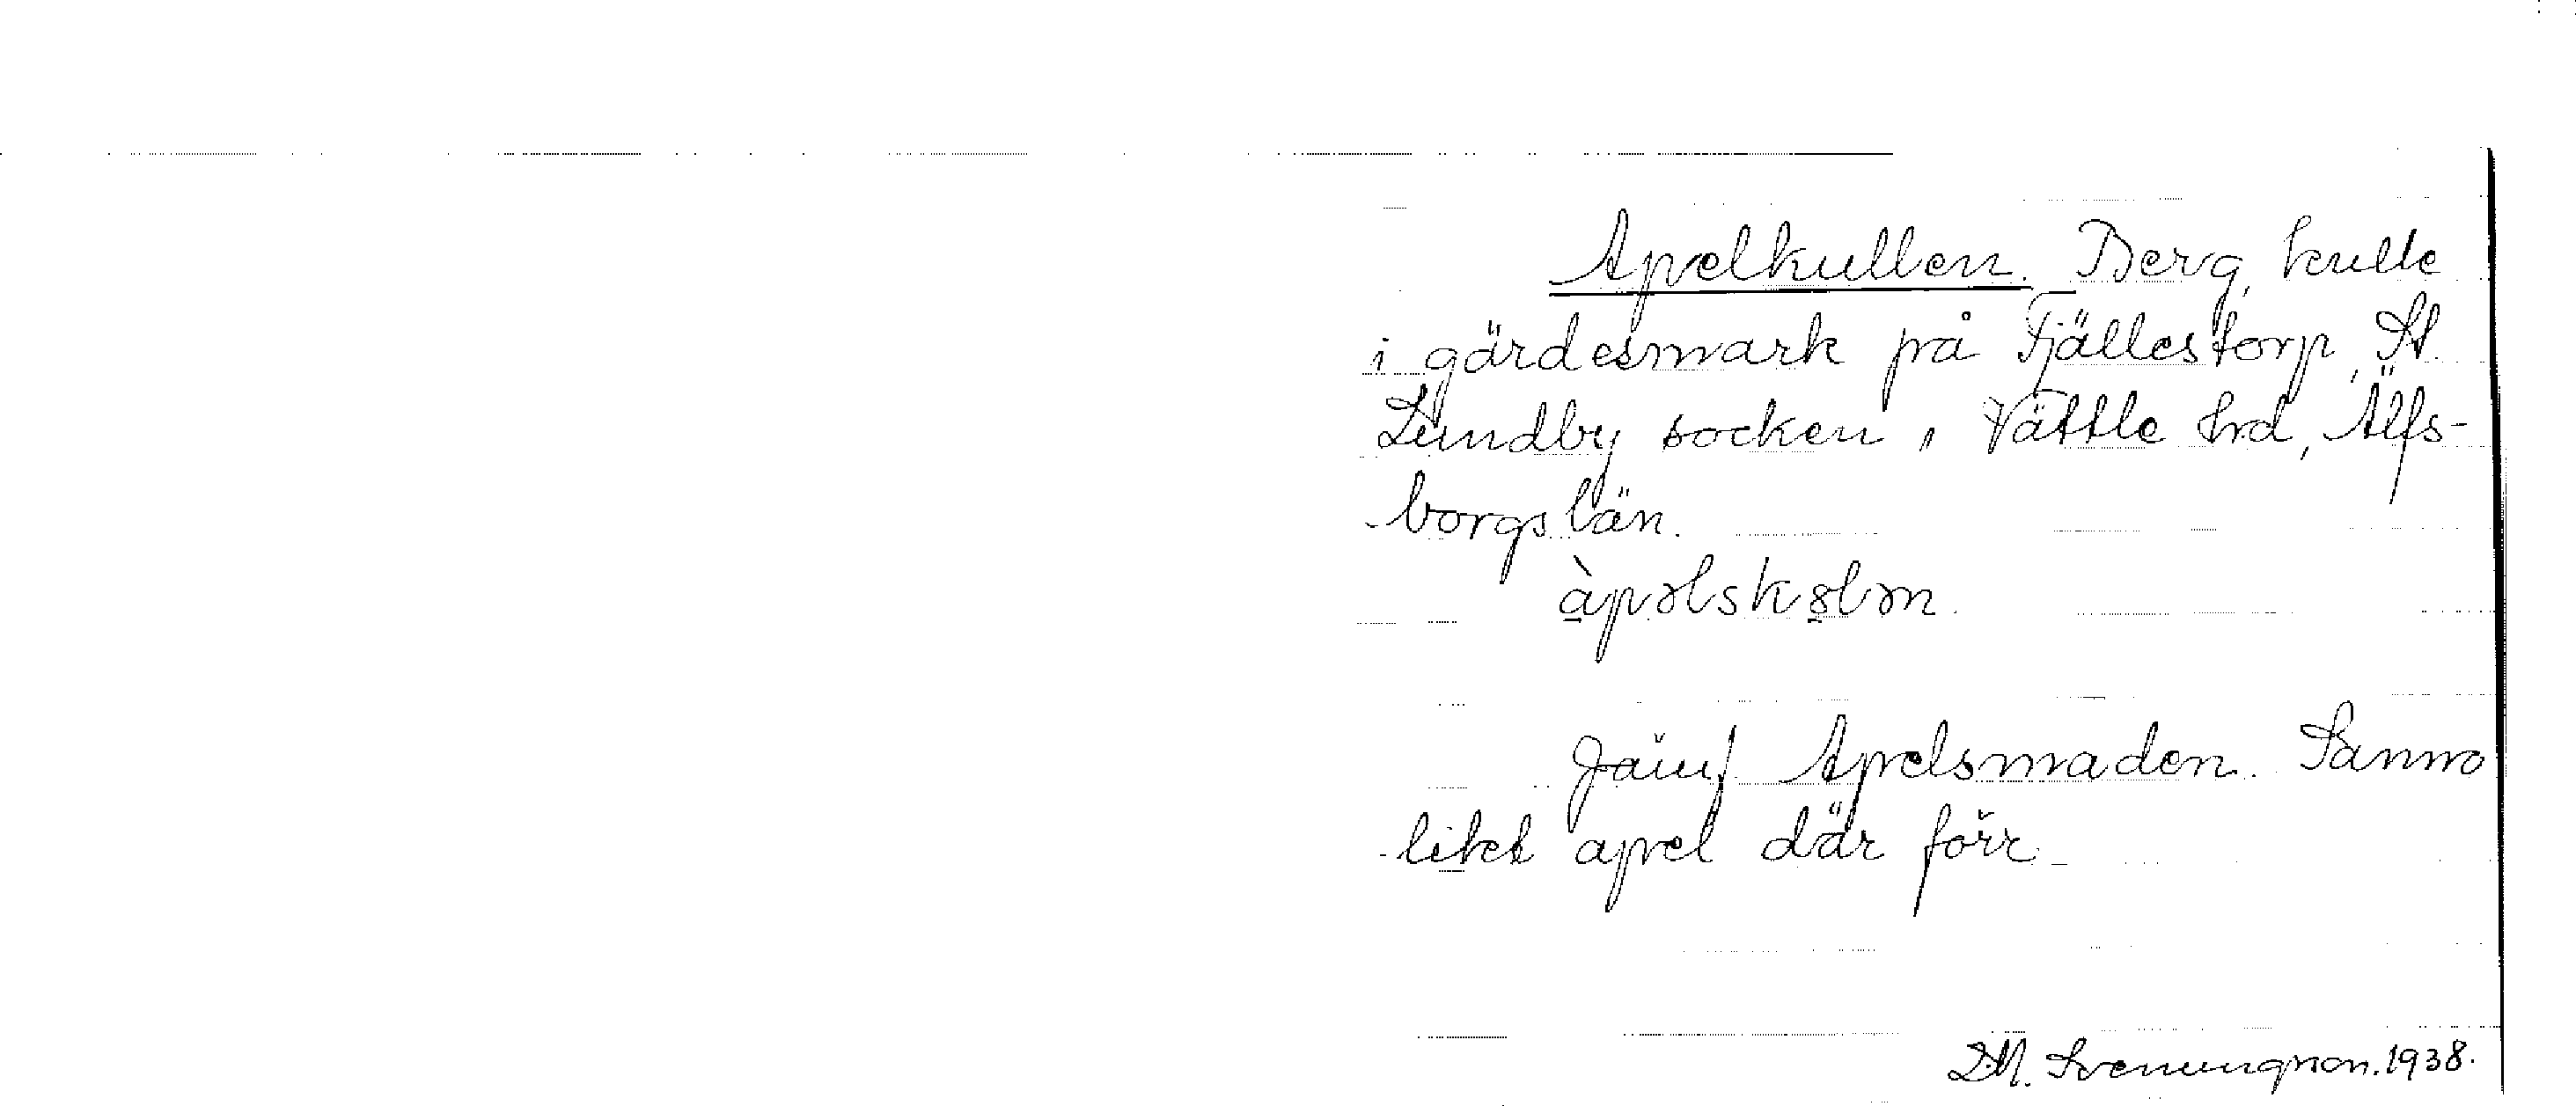 Apelkullen. Berg, kulle
i gärdesmark på Fjällestorp, St.
Lundby socken, Vättle hrd, Älfs-
-borgs län.
àpəlskələn.
Jämf. Apelsmaden. Sanno
-likt apel där förr
D.M. Svenungson. 1938.